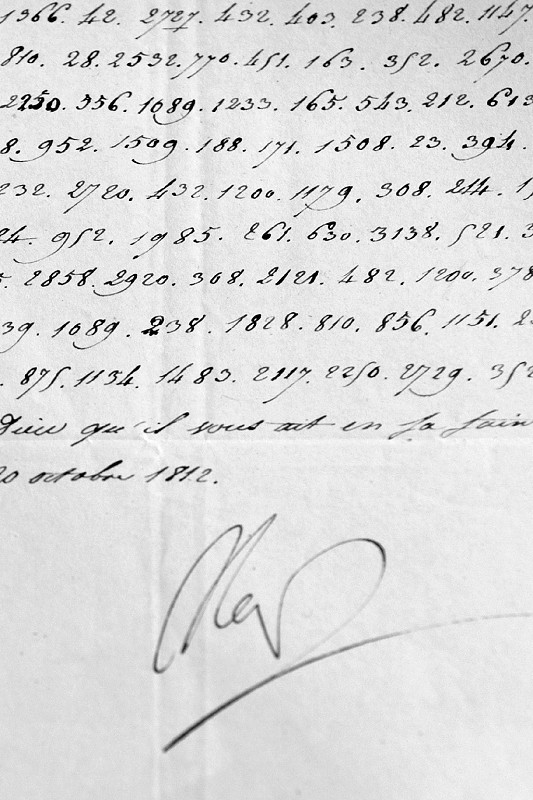 1366. 42. 2727. 432. 403. 238. 482. 1147.
810. 28. 2532. 770. 451. 163. 352. 2670.
2250. 556. 1089. 1233. 165. 543. 212. 613
8. 952. 1509. 188. 171. 1508. 23. 394.
232. 2720. 432. 1200. 1179. 308. 214. 1
24. 952. 1985. 261. 630. 3138. 521. 3
5. 2858. 2920. 308. 2121. 482. 1200. 378
39. 1089. 238. 1828. 810. 856. 1151. 2
. 875. 1134. 1483. 2117. 2250. 2729. 352
Dieu qu'il vous ait en sa sain
20 octobre 1812.
Nap